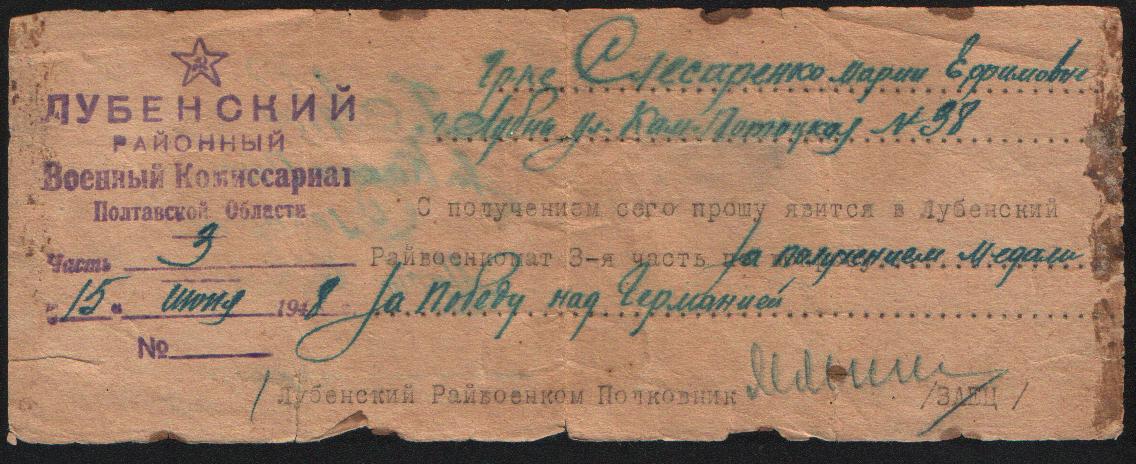 ЛУБЕНСКИЙ
РАЙОННЫЙ
Военный Комиссариат
Полтавской Области
Часть 3
"15" июня 1948
№
Гр-ке Слесаренко Марии Ефимовне
г. Лубны ул. Ком-Потоцкая № 38
С получением сего прошу явится в Лубенский
Райвоенкомат 3-я часть за получением Медали
За Победу над Германией
/ Лубенский Райвоенком Полковник /ЗАЕЦ /